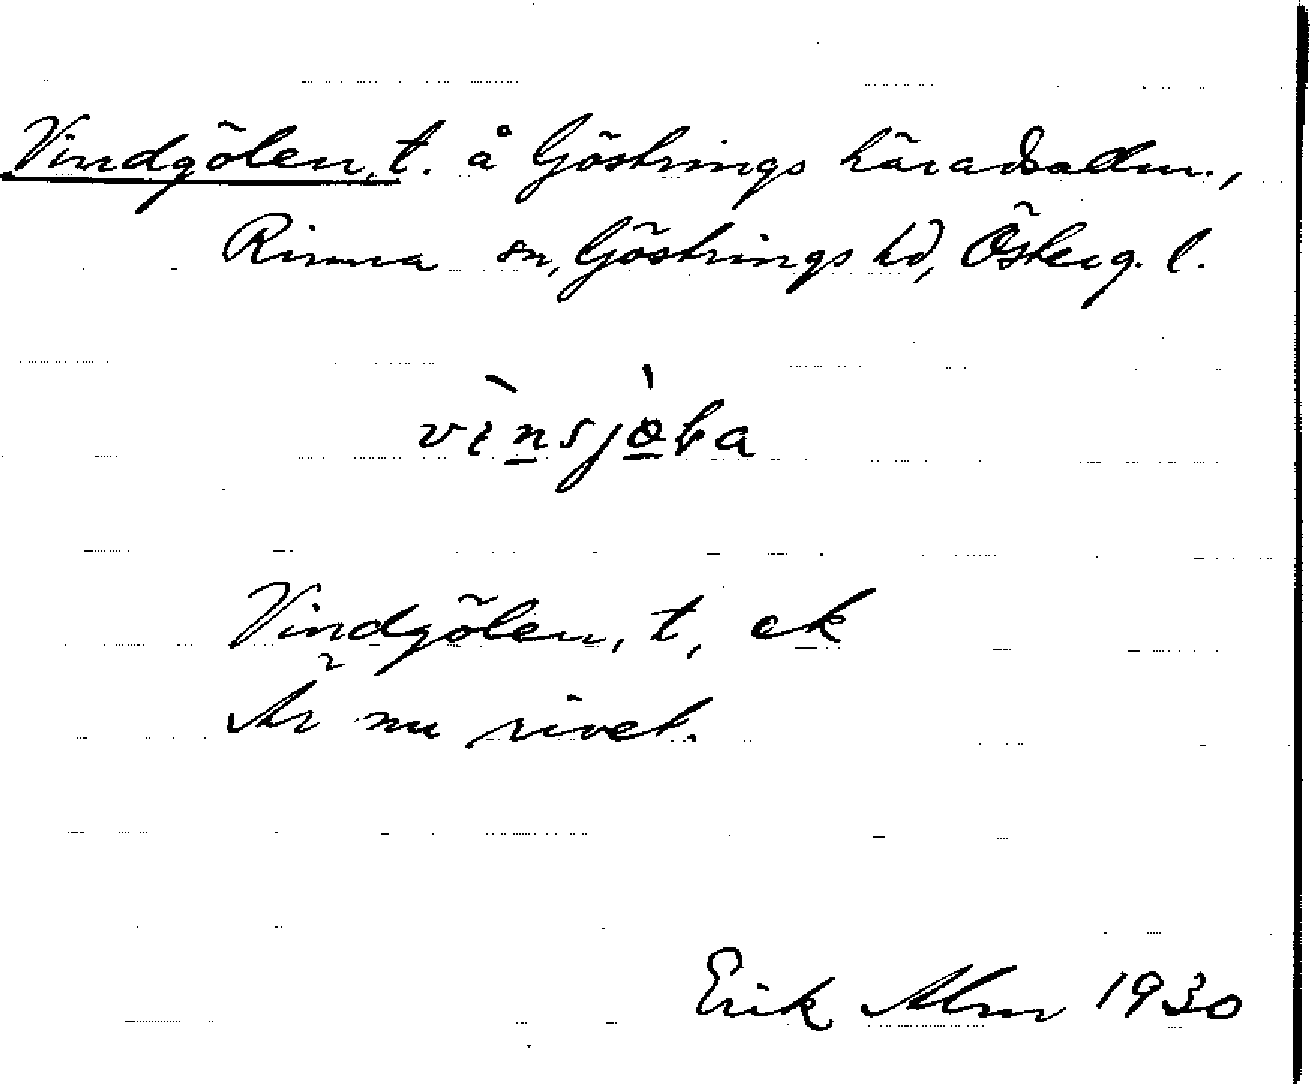 Vindgölen, t. å Göstrings häradsallm.,
Rinna sn, Göstrings hd, Österg. l.
vìnsjø̀ła
Vindgölen, t, ek
Är nu rivet.
Erik Alm 1930